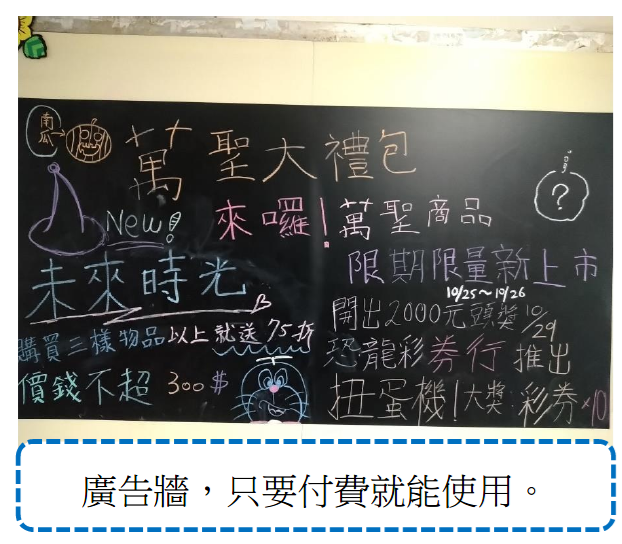 南瓜
萬聖大禮包
?
New!
來囉!萬聖商品
限期限量新上市
10/25~10/26
未來時光
開出2000元頭獎10/29
購買三樣物品以上就送75折
恐龍彩券行 推出
價錢不超300$
扭蛋機!大獎 彩券×10
廣告牆，只要付費就能使用。